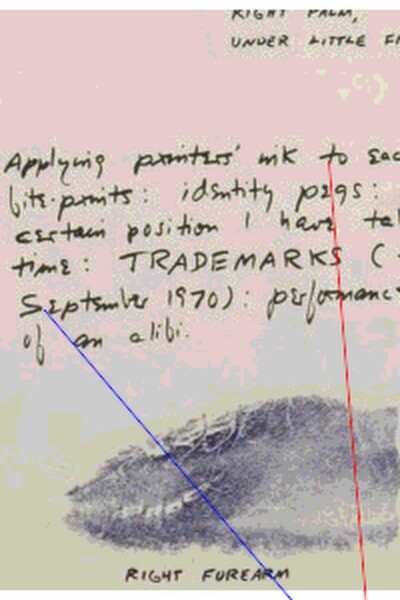 RIGHT PALM,
UNDER LITTLE FI
Applying printers' ink to eac
bite-prints: identity pegs:
certain position I have tak
time: TRADEMARKS (
September 1970): performanc
of an alibi.
RIGHT FOREARM